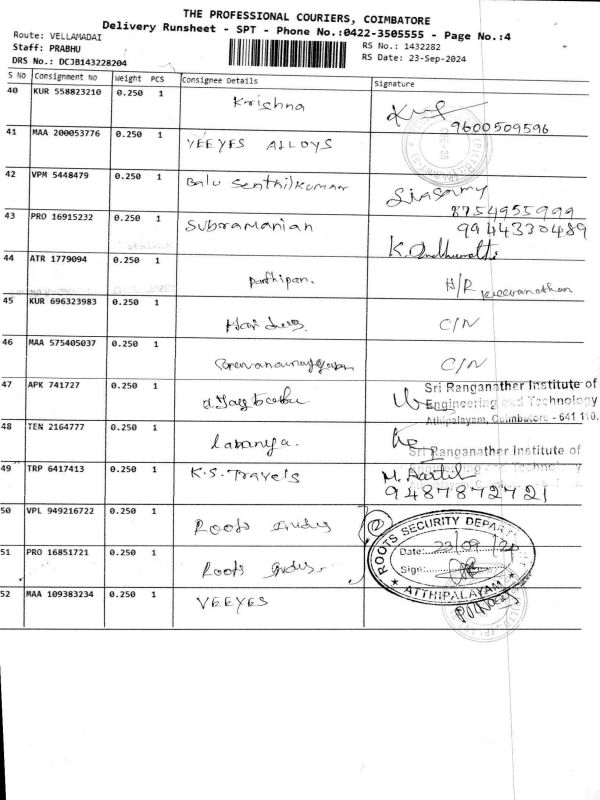 THE PROFESSIONAL COURIERS, COIMBATORE
Delivery Runsheet - SPT - Phone No.:0422-3505555 - Page No.:4
Route: VELLAMADAI
Staff: PRABHU
DRS No.: DCJB143228204
RS No.: 1432282
RS Date: 23-Sep-2024
S No Consignment No Weight PCS Consignee Details Signature
40 KUR 558823210 0.250 1 Krishna
9600509596
41 MAA 200053776 0.250 1 VEEYES ALLOYS
42 VPM 5448479 0.250 1 Balu Senthilkumar
8754955999
43 PRO 16915232 0.250 1 Subramanian 9944330489
44 ATR 1779094 0.250 1 Parthipan. H/R
45 KUR 696323983 0.250 1 C/N
46 MAA 575405037 0.250 1 C/N
47 APK 741727 0.250 1 Sri Ranganather Institute of
Engineering and Technology
Athipalayam, Coimbatore - 641 110.
48 TEN 2164777 0.250 1 Lavanya.
Sri Ranganather Institute of
49 TRP 6417413 0.250 1 K.S. Travels
9487872721
50 VPL 949216722 0.250 1 Roots Indus
12
ROOTS SECURITY DEPART
Date: 23/09/24
51 PRO 16851721 0.250 1 Roots Indus.
Sign:
ATTHIPALAYAM
52 MAA 109383234 0.250 1 VEEYES